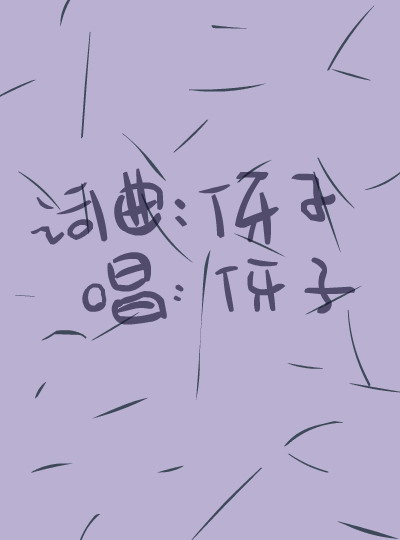 词曲:伢子
唱:伢子